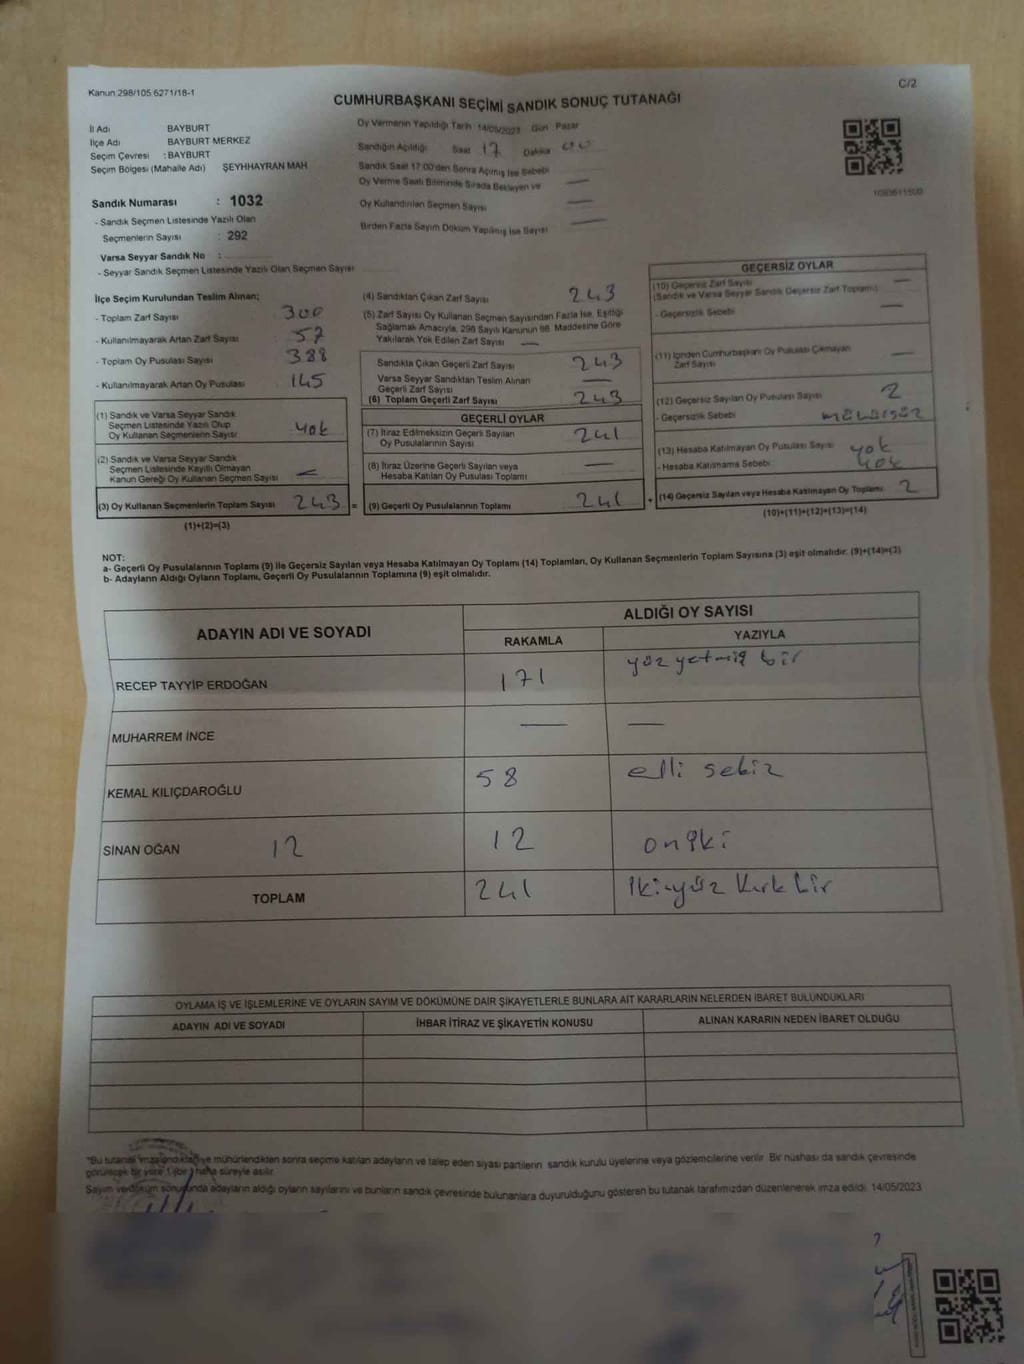 Kanun 298/105 6271/18-1
C/2
CUMHURBAŞKANI SEÇİMİ SANDIK SONUÇ TUTANAĞI
İl Adı BAYBURT
İlçe Adı BAYBURT MERKEZ
Seçim Çevresi : BAYBURT
Seçim Bölgesi (Mahalle Adı) ŞEYHHAYRAN MAH
Sandık Numarası : 1032
- Sandık Seçmen Listesinde Yazılı Olan
Seçmenlerin Sayısı : 292
Varsa Seyyar Sandık No :
- Seyyar Sandık Seçmen Listesinde Yazılı Olan Seçmen Sayısı
Oy Vermenin Yapıldığı Tarih 14/05/2023 Gün Pazar
Sandığın Açıldığı Saat 17 Dakika 00
Sandık Saat 17:00'den Sonra Açılmış İse Sebebi
Oy Verme Saati Bitiminde Sırada Bekleyen ve
Oy Kullandırılan Seçmen Sayısı
Birden Fazla Sayım Döküm Yapılmış İse Sayısı
İlçe Seçim Kurulundan Teslim Alınan;
- Toplam Zarf Sayısı 300
- Kullanılmayarak Artan Zarf Sayısı 57
- Toplam Oy Pusulası Sayısı 388
- Kullanılmayarak Artan Oy Pusulası 145
(1) Sandık ve Varsa Seyyar Sandık
Seçmen Listesinde Yazılı Olup
Oy Kullanan Seçmenlerin Sayısı yok
(2) Sandık ve Varsa Seyyar Sandık
Seçmen Listesinde Kayıtlı Olmayan
Kanun Gereği Oy Kullanan Seçmen Sayısı
(3) Oy Kullanan Seçmenlerin Toplam Sayısı 243 =
(1)+(2)=(3)
(4) Sandıktan Çıkan Zarf Sayısı 243
(5) Zarf Sayısı Oy Kullanan Seçmen Sayısından Fazla İse, Eşitliği
Sağlamak Amacıyla, 298 Sayılı Kanunun 98. Maddesine Göre
Yakılarak Yok Edilen Zarf Sayısı
Sandıkta Çıkan Geçerli Zarf Sayısı 243
Varsa Seyyar Sandıktan Teslim Alınan
Geçerli Zarf Sayısı
(6) Toplam Geçerli Zarf Sayısı 243
GEÇERLİ OYLAR
(7) İtiraz Edilmeksizin Geçerli Sayılan
Oy Pusulalarının Sayısı 241
(8) İtiraz Üzerine Geçerli Sayılan veya
Hesaba Katılan Oy Pusulası Toplamı
(9) Geçerli Oy Pusulalarının Toplamı 241 +
GEÇERSİZ OYLAR
(10) Geçersiz Zarf Sayısı
(Sandık ve Varsa Seyyar Sandık Geçersiz Zarf Toplamı)
- Geçersizlik Sebebi
(11) İçinden Cumhurbaşkanı Oy Pusulası Çıkmayan
Zarf Sayısı
(12) Geçersiz Sayılan Oy Pusulası Sayısı 2
- Geçersizlik Sebebi mühürsüz
(13) Hesaba Katılmayan Oy Pusulası Sayısı yok
- Hesaba Katılmama Sebebi yok
(14) Geçersiz Sayılan veya Hesaba Katılmayan Oy Toplamı 2
(10)+(11)+(12)+(13)=(14)
NOT:
a- Geçerli Oy Pusulalarının Toplamı (9) ile Geçersiz Sayılan veya Hesaba Katılmayan Oy Toplamı (14) Toplamları, Oy Kullanan Seçmenlerin Toplam Sayısına (3) eşit olmalıdır. (9)+(14)=(3)
b- Adayların Aldığı Oyların Toplamı, Geçerli Oy Pusulalarının Toplamına (9) eşit olmalıdır.
ADAYIN ADI VE SOYADI
ALDIĞI OY SAYISI
RAKAMLA YAZIYLA
RECEP TAYYİP ERDOĞAN 171 yüz yetmiş bir
MUHARREM İNCE
KEMAL KILIÇDAROĞLU 58 elli sekiz
SİNAN OĞAN 12 12 oniki
TOPLAM 241 ikiyüz kırk bir
OYLAMA İŞ VE İŞLEMLERİNE VE OYLARIN SAYIM VE DÖKÜMÜNE DAİR ŞİKAYETLERLE BUNLARA AİT KARARLARIN NELERDEN İBARET BULUNDUKLARI
ADAYIN ADI VE SOYADI İHBAR İTİRAZ VE ŞİKAYETİN KONUSU ALINAN KARARIN NEDEN İBARET OLDUĞU
*Bu tutanak imzalandıktan ve mühürlendikten sonra seçime katılan adayların ve talep eden siyasi partilerin sandık kurulu üyelerine veya gözlemcilerine verilir. Bir nüshası da sandık çevresinde
görülecek bir yere 1 (bir) hafta süreyle asılır.
Sayım ve döküm sonucunda adayların aldığı oyların sayılarını ve bunların sandık çevresinde bulunanlara duyurulduğunu gösteren bu tutanak tarafımızdan düzenlenerek imza edildi. 14/05/2023